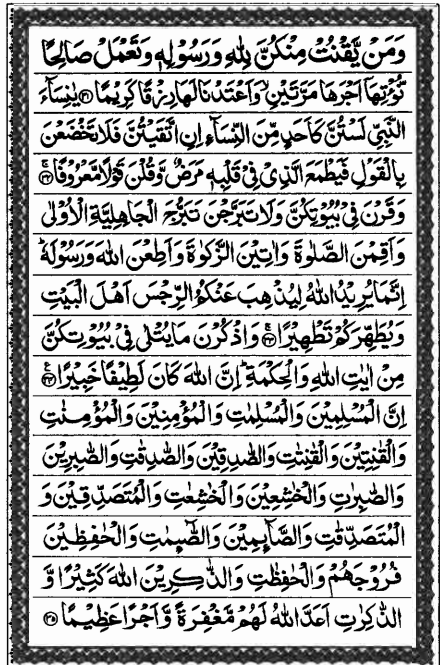 وَمَنْ يَّقْنُتْ مِنْكُنَّ لِلّٰهِ وَرَسُوْلِهٖ وَتَعْمَلْ صَالِحًا
نُّؤْتِهَاۤ اَجْرَهَا مَرَّتَيْنِ ۙ وَاَعْتَدْنَا لَهَا رِزْقًا كَرِيْمًا ۝۳۱ يٰنِسَآءَ
النَّبِيِّ لَسْتُنَّ كَاَحَدٍ مِّنَ النِّسَآءِ اِنِ اتَّقَيْتُنَّ فَلَا تَخْضَعْنَ
بِالْقَوْلِ فَيَطْمَعَ الَّذِيْ فِيْ قَلْبِهٖ مَرَضٌ وَّقُلْنَ قَوْلًا مَّعْرُوْفًا ۝۳۲
وَقَرْنَ فِيْ بُيُوْتِكُنَّ وَلَا تَبَرَّجْنَ تَبَرُّجَ الْجَاهِلِيَّةِ الْاُوْلٰى
وَاَقِمْنَ الصَّلٰوةَ وَاٰتِيْنَ الزَّكٰوةَ وَاَطِعْنَ اللّٰهَ وَرَسُوْلَهٗ ؕ
اِنَّمَا يُرِيْدُ اللّٰهُ لِيُذْهِبَ عَنْكُمُ الرِّجْسَ اَهْلَ الْبَيْتِ
وَيُطَهِّرَكُمْ تَطْهِيْرًا ۝۳۳ وَاذْكُرْنَ مَا يُتْلٰى فِيْ بُيُوْتِكُنَّ
مِنْ اٰيٰتِ اللّٰهِ وَالْحِكْمَةِ ؕ اِنَّ اللّٰهَ كَانَ لَطِيْفًا خَبِيْرًا ۝۳۴
اِنَّ الْمُسْلِمِيْنَ وَالْمُسْلِمٰتِ وَالْمُؤْمِنِيْنَ وَالْمُؤْمِنٰتِ
وَالْقٰنِتِيْنَ وَالْقٰنِتٰتِ وَالصّٰدِقِيْنَ وَالصّٰدِقٰتِ وَالصّٰبِرِيْنَ
وَالصّٰبِرٰتِ وَالْخٰشِعِيْنَ وَالْخٰشِعٰتِ وَالْمُتَصَدِّقِيْنَ وَ
الْمُتَصَدِّقٰتِ وَالصَّآىِٕمِيْنَ وَالصّٰٓىِٕمٰتِ وَالْحٰفِظِيْنَ
فُرُوْجَهُمْ وَالْحٰفِظٰتِ وَالذّٰكِرِيْنَ اللّٰهَ كَثِيْرًا وَّ
الذّٰكِرٰتِ اَعَدَّ اللّٰهُ لَهُمْ مَّغْفِرَةً وَّاَجْرًا عَظِيْمًا ۝۳۵